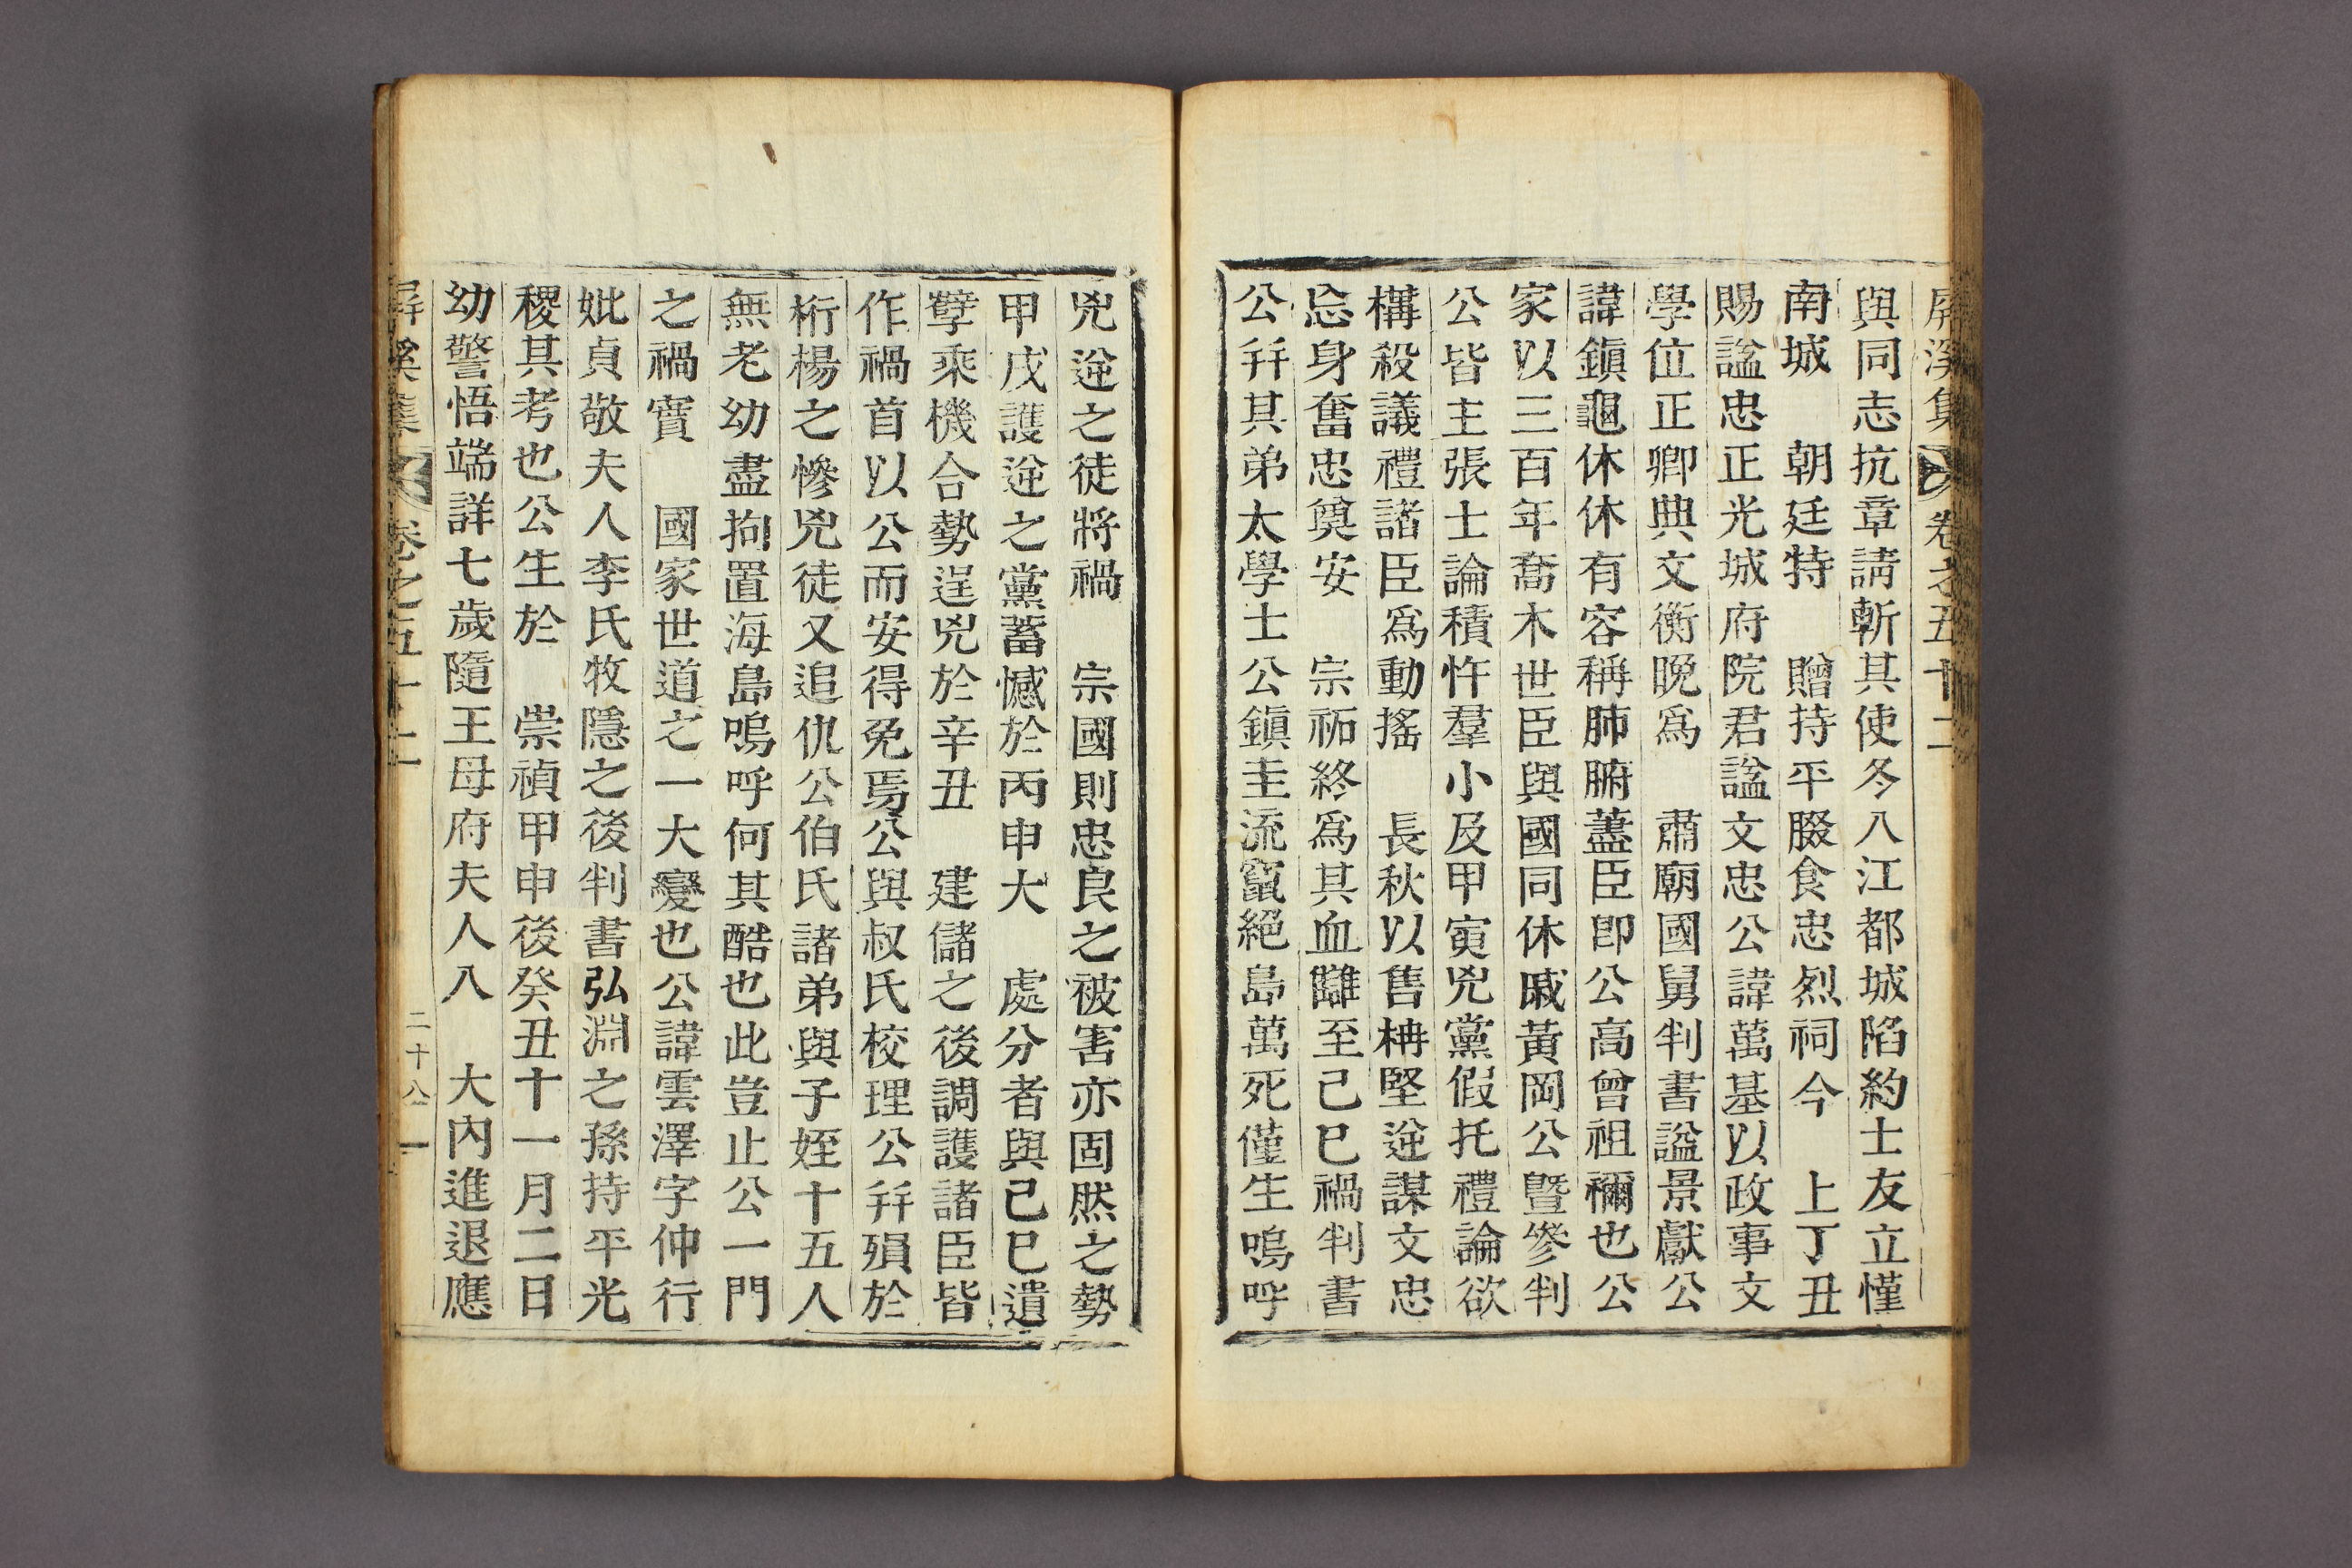 屛溪集 卷之五十二
與同志抗章請斬其使冬八江都城陷約士友立慬
南城 朝廷特 贈持平腏食忠烈祠今 上丁丑
賜諡忠正光城府院君諡文忠公諱萬基以政事文
學位正卿典文衡晩爲 肅廟國舅判書諡景獻公
諱鎭龜休休有容稱肺腑藎臣卽公高曾祖禰也公
家以三百年喬木世臣與國同休戚黃岡公曁參判
公皆主張士論積忤羣小及甲寅兇黨假托禮論欲
構殺議禮諸臣爲動搖 長秋以售柟堅逆謀文忠
忘身奮忠奠安 宗祏終爲其血讎至己巳禍判書
公幷其弟太學士公鎭圭流竄絕島萬死僅生嗚呼
兇逆之徒將禍 宗國則忠良之被害亦固然之勢
甲戌護逆之黨蓄憾於丙申大 處分者與己巳遺
孼乘機合勢逞兇於辛丑 建儲之後調護諸臣皆
作禍首以公而安得免焉公與叔氏校理公幷殞於
桁楊之慘兇徒又追仇公伯氏諸弟與子姪十五人
無老幼盡拘置海島嗚呼何其酷也此豈止公一門
之禍實 國家世道之一大變也公諱雲澤字仲行
妣貞敬夫人李氏牧隱之後判書弘淵之孫持平光
稷其考也公生於 崇禎甲申後癸丑十一月二日
幼警悟端詳七歲隨王母府夫人八 大內進退應
屛溪集 卷之五十二 二十八